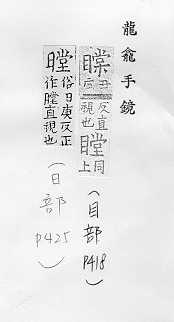 龍龕手鏡
反直
視也
瞠
同
上
俗丑庚反正
作瞠直視也
（目部
P418）
（日部
P425）